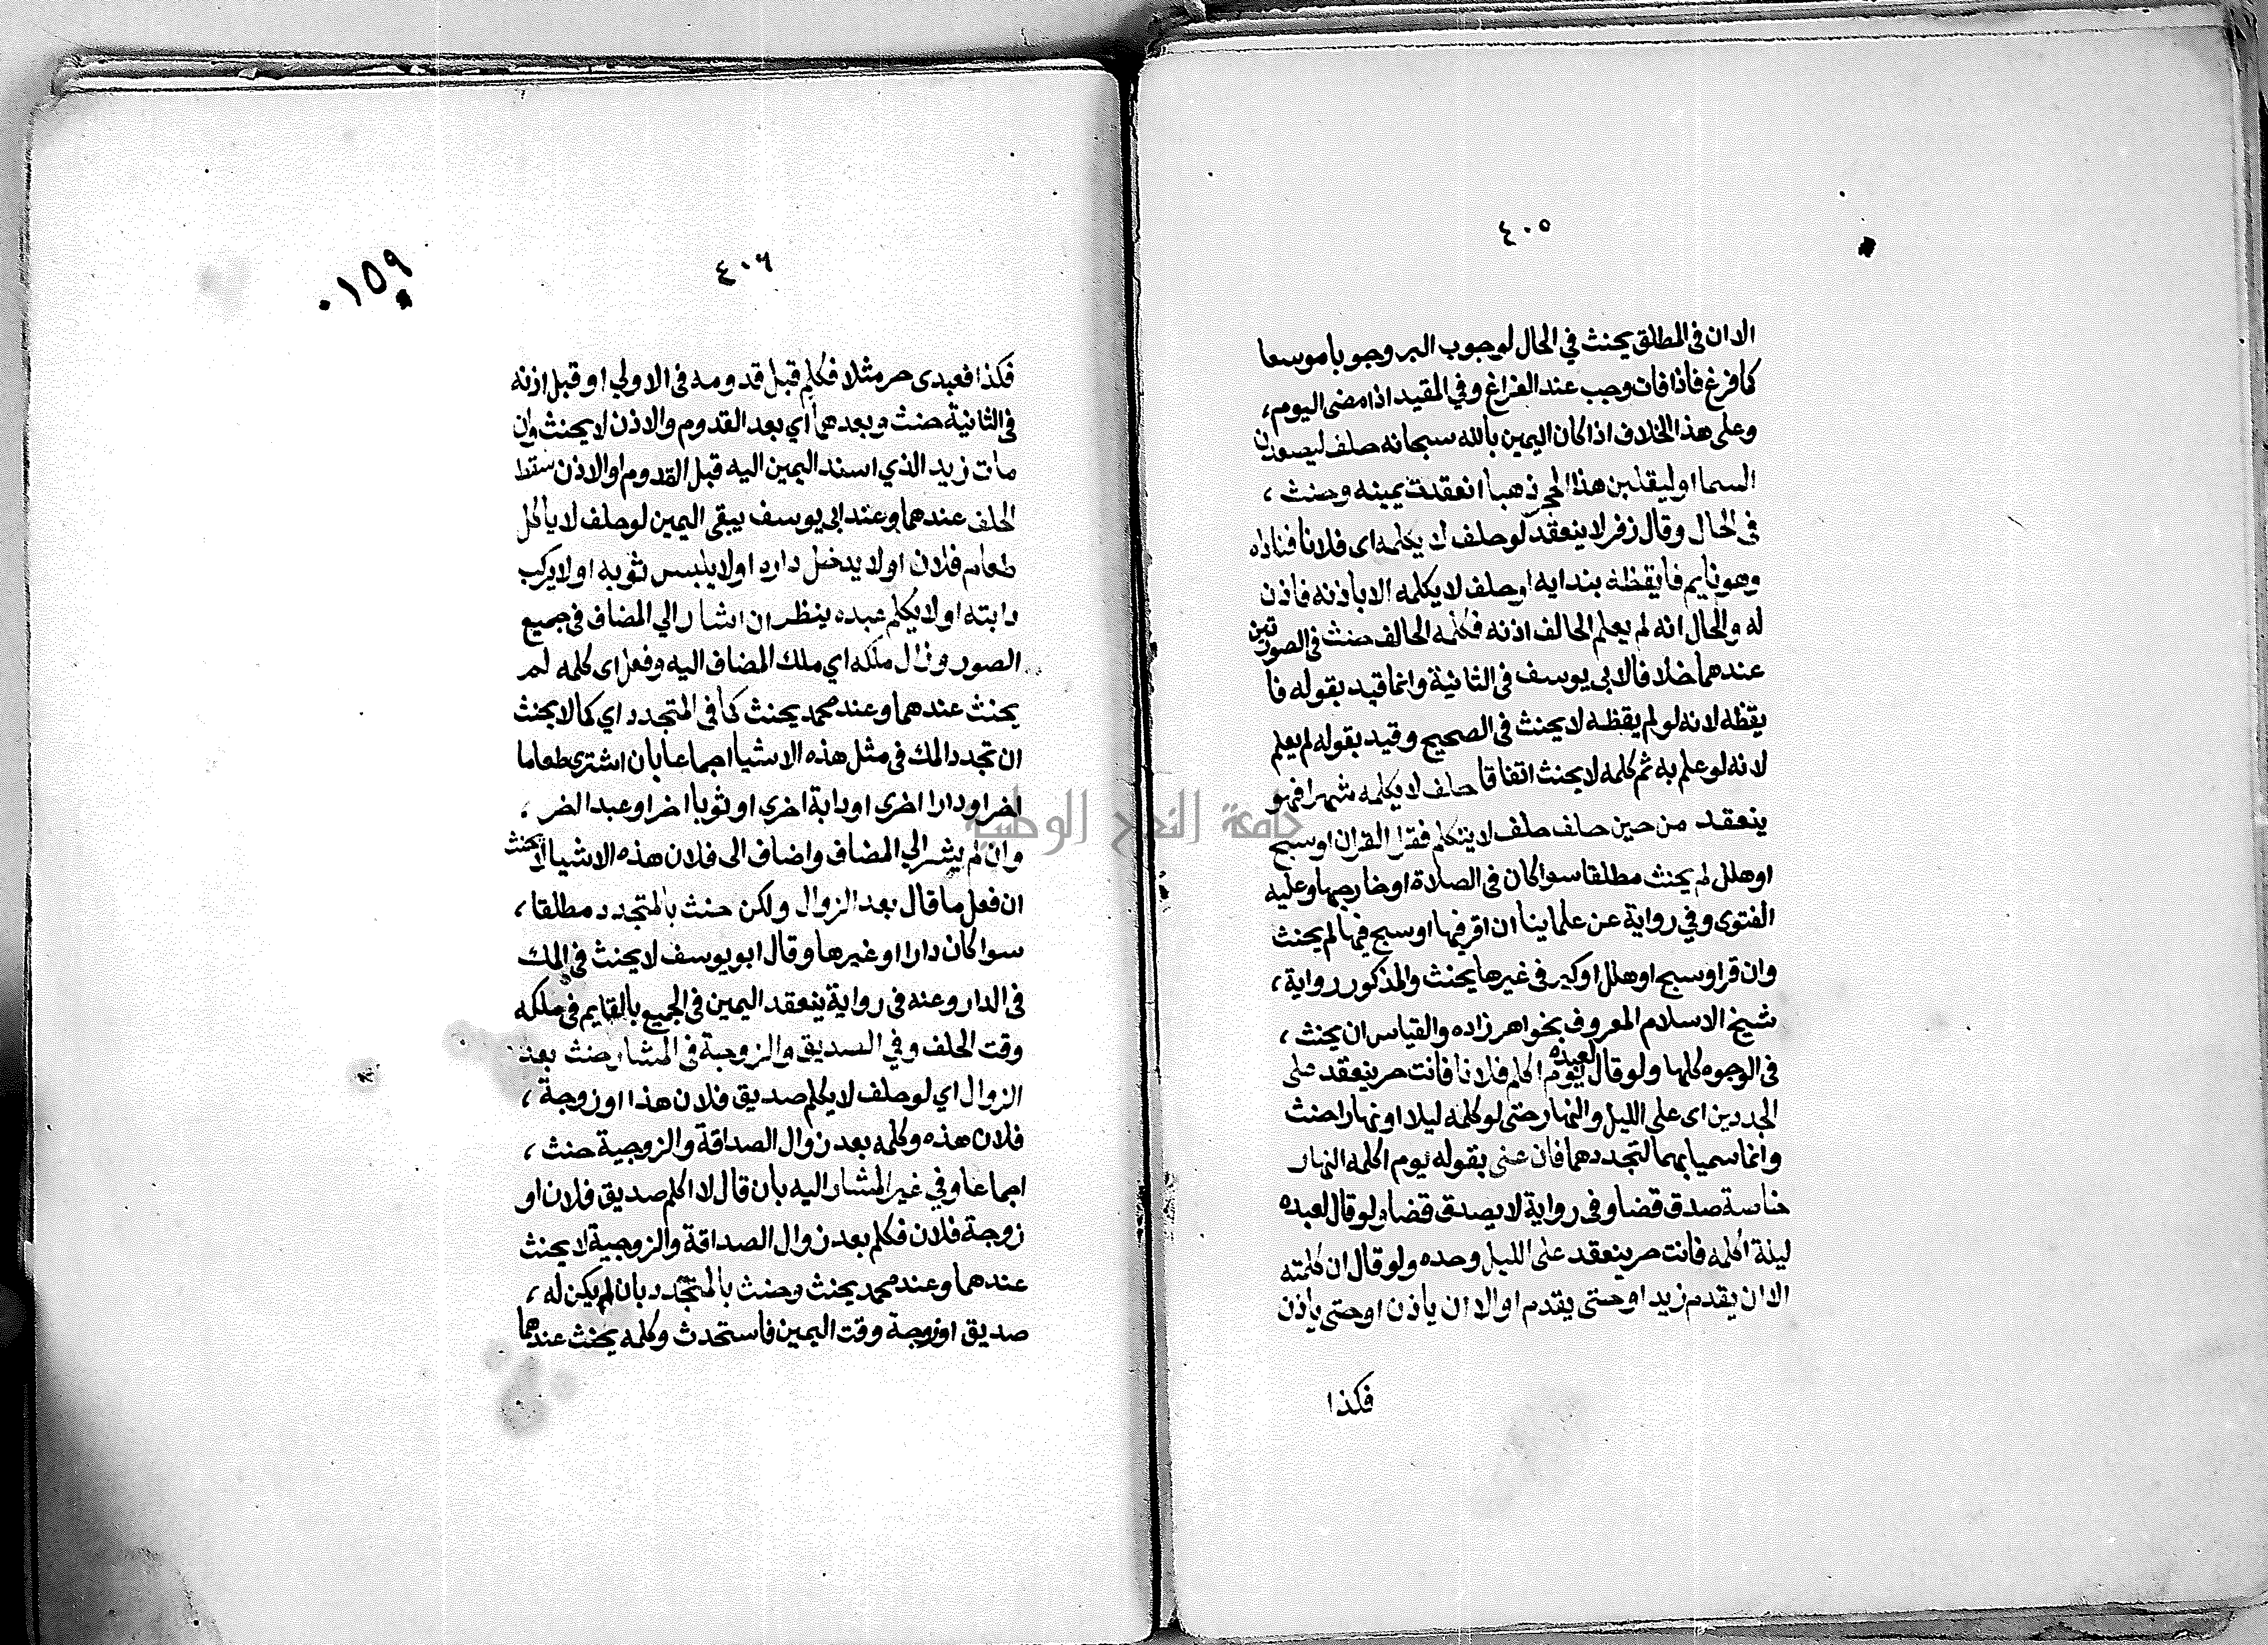 ٤٠٥
الا ان فى المطلق يحنث في الحال لوجوب البر وجوبا موسعا
كما فرغ فاذا فات وجب عند الفراغ وفي المقيد اذا مضى اليوم،
وعلى هذا الخلاف اذا كان اليمين بالله سبحانه حلف ليصعدن
السما او ليقلبن هذا الحجر ذهبا انعقدت يمينه وحنث،
فى الحال وقال زفر لا ينعقد لو حلف لا يكلمه اى فلانا فناداه
وهو نايم فايقظه بندايه او حلف لا يكلمه الا باذنه فاذن
له والحال انه لم يعلم الحالف اذنه فكلمه الحالف حنث فى الصورتين
عندهما خلافا لابى يوسف فى الثانية وانما قيد بقوله فا
يقظه لانه لو لم يقظه لا يحنث فى الصحيح وقيد بقوله لم يعلم
لانه لو علم به ثم كلمه لا يحنث اتفاقا حلف لا يكلمه شهرا فهو
ينعقد من حين حلف حلف لا يتكلم فقرا القران او سبح
او هلل لم يحنث مطلقا سوا كان فى الصلاة او خارجها وعليه
الفتوى وفي رواية عن علماينا ان اقر فيها او سبح فيها لم يحنث
وان قرا وسبح او هلل او كبر فى غيرها يحنث والمذكور رواية،
شيخ الاسلام المعروف بخواهر زاده والقياس ان يحنث،
فى الوجوه كلها ولو قال لعبده يوم اكلم فلانا فانت حر ينعقد على
الجددين اى على الليل والنهار حتى لو كلمه ليلا او نهارا حنث
وانما سميا بهما لتجددهما فان عنى بقوله يوم اكلمه النهار
خاسة صدق قضا وفى رواية لا يصدق قضا ولو قال لعبده
ليلة اكلمه فانت حر ينعقد على الليل وحده ولو قال ان كلمته
الا ان يقدم زيد او حتى يقدم او الا ان ياذن او حتى ياذن
فكذا
٤٠٦
٠١٥٩
فكذا فعبدى حر مثلا فكلم قبل قدومه فى الاولي او قبل اذنه
فى الثانية حنث وبعدهما أي بعد القدوم والاذن لا يحنث وان
مات زيد الذي اسند اليمين اليه قبل القدوم او الاذن سقط
الحلف عندهما وعند ابى يوسف يبقى اليمين لو حلف لا ياكل
طعام فلان او لا يدخل داره او لا يلبس ثوبه او لا يركب
دابته او لا يكلم عبده ينظر ان اشار الي المضاف فى جميع
الصور وزال ملكه اي ملك المضاف اليه وفعل اى كلمه لم
يحنث عندهما وعند محمد يحنث كما فى المتجدد اي كما لا يحنث
ان تجدد الملك فى مثل هذه الاشيا اجماعا بان اشترى طعاما
اخر او دارا اخرى او دابة اخري او ثوبا اخر او عبدا اخر،
وان لم يشر الي المضاف واضاف الى فلان هذه الاشيا لا يحنث
ان فعل ما قال بعد الزوال ولكن حنث بالمتجدد مطلقا،
سوا كان دارا او غيرها وقال ابو يوسف لا يحنث في الملك
فى الدار وعنه فى رواية ينعقد اليمين فى الجميع بالقايم فى ملكه
وقت الحلف وفي السديق والزوجة فى المشار حنث بعد
الزوال اي لو حلف لا يكلم صديق فلان هذا او زوجة،
فلان هذه وكلمه بعد زوال الصداقة والزوجية حنث،
اجماعا وفي غير المشار اليه بان قال لا اكلم صديق فلان او
زوجة فلان فكلم بعد زوال الصداقة والزوجية لا يحنث
عندهما وعند محمد يحنث وحنث بالمتجدد بان لم يكن له،
صديق او زوجة وقت اليمين فاستحدث وكلمه يحنث عندهما
جامعة النجاح الوطنية